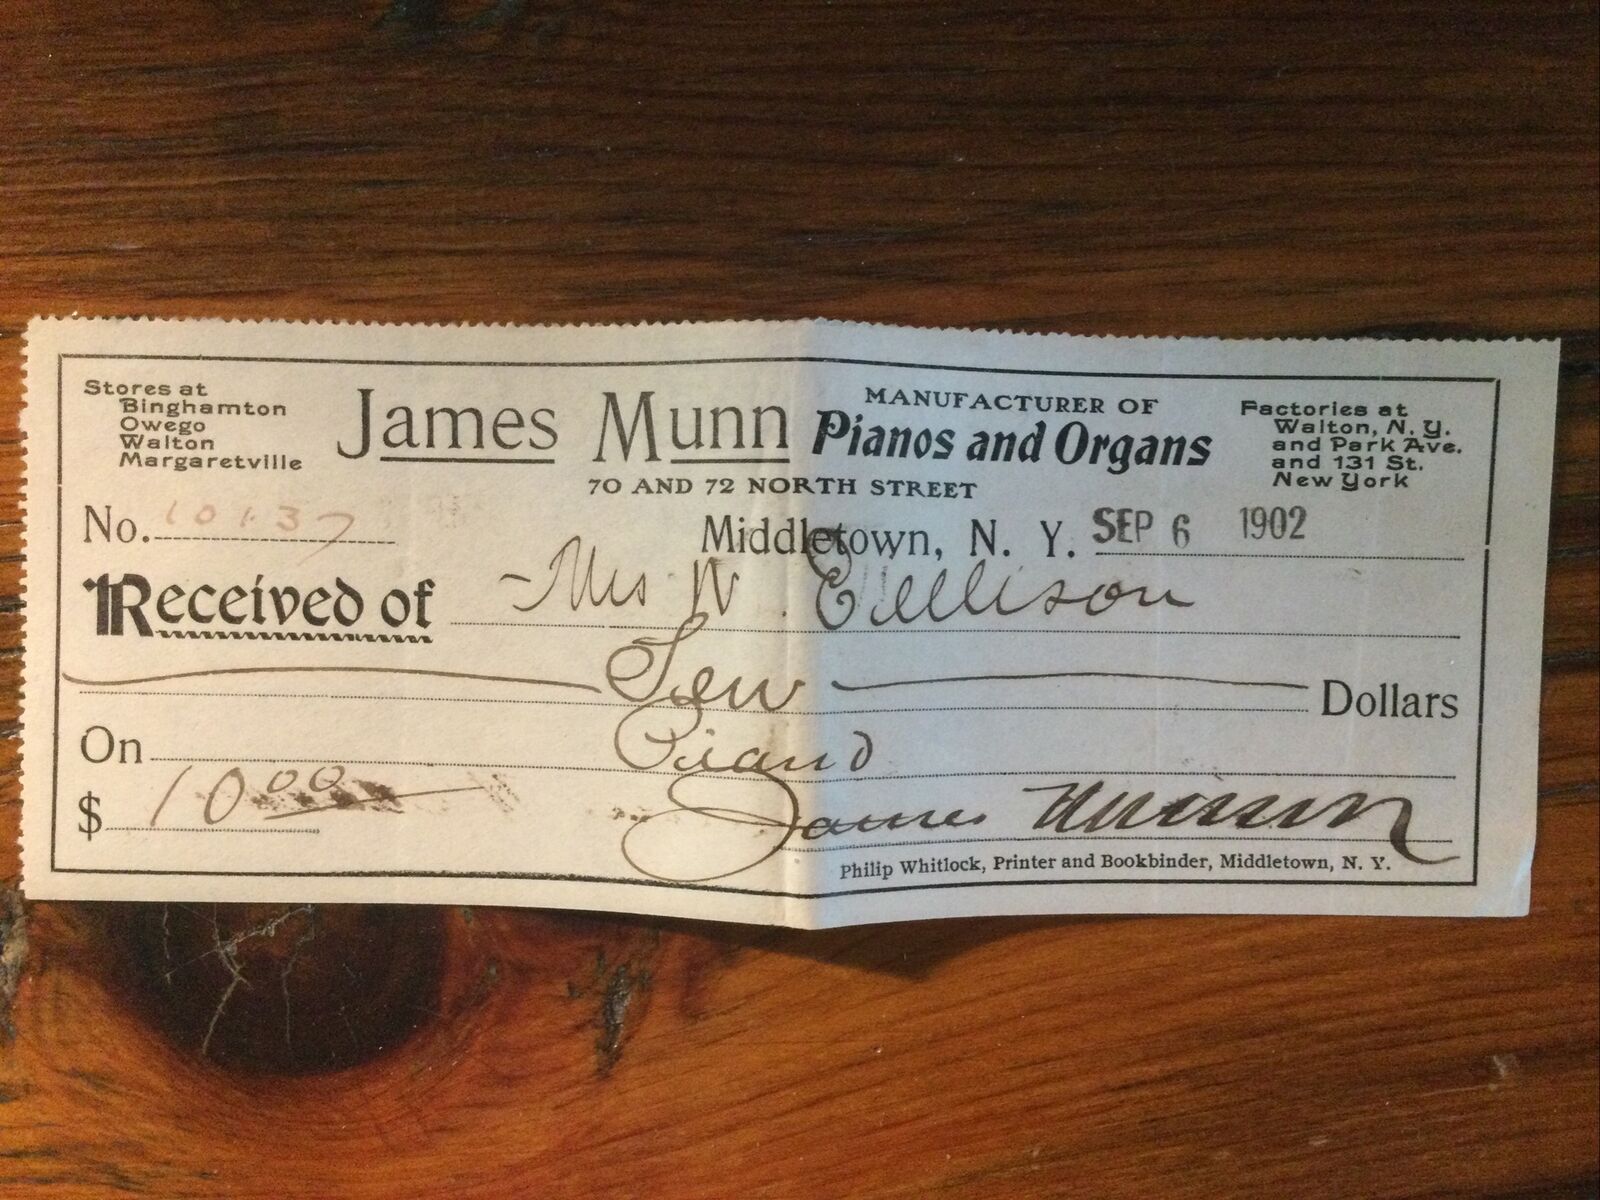 Stores at
Binghamton
Owego
Walton
Margaretville
James Munn
MANUFACTURER OF
Pianos and Organs
70 AND 72 NORTH STREET
Factories at
Walton, N. Y.
and Park Ave.
and 131 St.
New York
No. 10137
Middletown, N. Y. SEP 6 1902
Received of Mrs W. Ellison
Ten Dollars
On Piano
$ 10 00
James Munn
Philip Whitlock, Printer and Bookbinder, Middletown, N. Y.